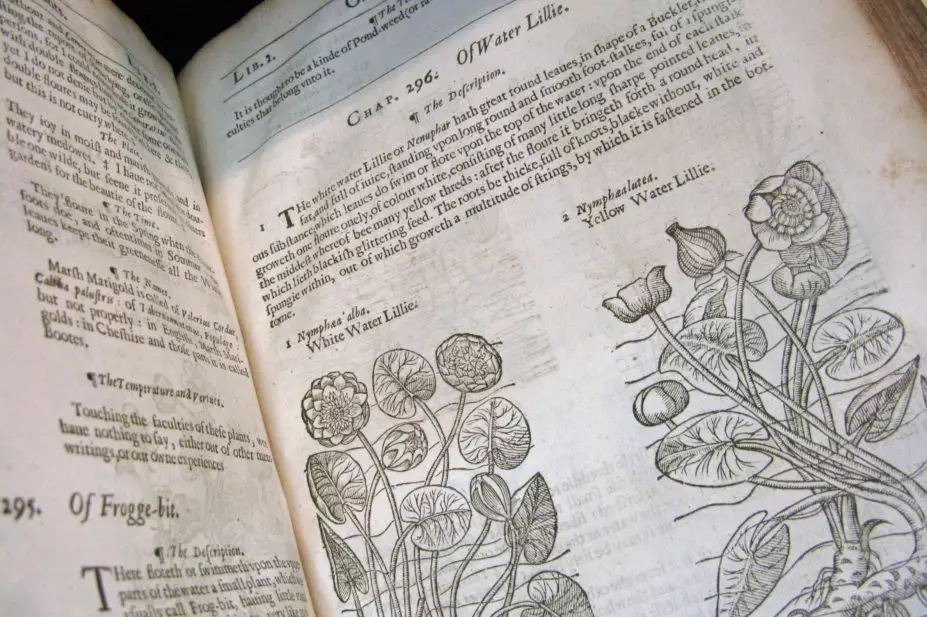 They joy in moist and marish
watery medowes. ‡ I haue not
ble one wilde, but seene it preserued in
gardens for the beautie of the floure
The Time.
They floure in the Spring when the
leaues keepe their greenesse all the Winter
long.
¶ The Names.
Marsh Marigold is called of Valerius Cordus,
Caltha palustris: of Tabernamontanus, Populago:
but not properly: in English, Marsh Mari-
golds: in Cheshire and those parts it is called
Bootes.
¶ The Temperature and Vertues.
Touching the faculties of these plants, wee
haue nothing to say, either out of other mens
writings, or our owne experiences
295. Of Frogge-bit.
¶ The Description.
THere floteth or swimmeth vpon the vpper
parts of the water a small plant, which we
vsually call Frog-bit, hauing little round
LIB. 2.
It is thought to be a kinde of Pond-weed (or ra
culties that belong vnto it.
CHAP. 296: Of Water Lillie.
¶ The Description.
1 THe white water Lillie or Nenuphar hath great round leaues, in shape of a Buckler,
fat, and full of iuice, standing vpon long round and smooth foot-stalkes, ful of a spungi-
ous substance, which leaues do swim or flote vpon the top of the water: vpon the end of each stalk
groweth one floure onely, of colour white, consisting of many little long sharpe pointed leaues, in
the middest whereof bee many yellow threds: after the floure it bringeth forth a round head, in
which lieth blackish glittering seed. The roots be thicke, full of knots, blacke without, white and
spungie within, out of which groweth a multitude of strings, by which it is fastened in the bot-
tome.
1 Nymphæa alba.
White Water Lillie:
2 Nymphæa lutea.
Yellow Water Lillie: